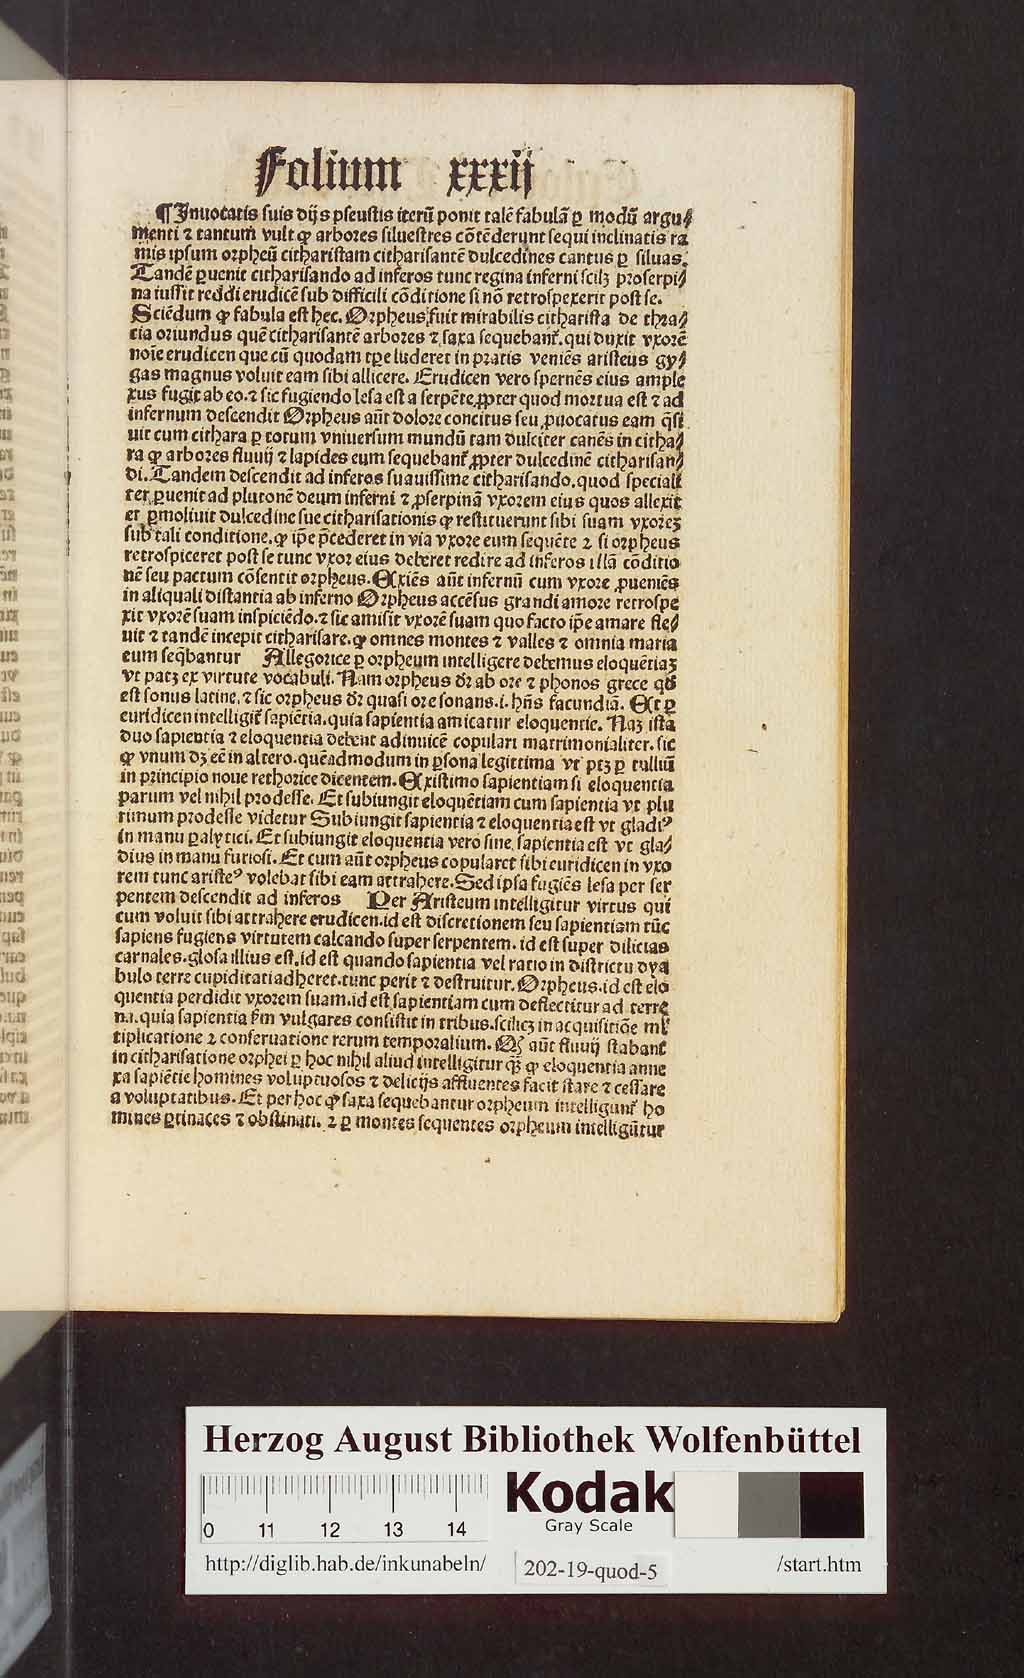 Folium xxxij
¶ Inuocatis suis dijs pseustis iterū ponit talē fabulā ꝑ modū argu⸗
menti ⁊ tantum vult ꝙ arbores siluestres cōtēderunt sequi inclinatis ra
mis ipsum orpheū citharistam citharisantē dulcedines cantus ꝑ siluas.
Tandē ꝑuenit citharisando ad inferos tunc regina inferni scilꝫ proserpi⸗
na iussit reddi erudicē sub difficili cōditione si nō retrospexerit post se.
Sciēdum ꝙ fabula est hec. Orpheus fuit mirabilis citharista de thra⸗
cia oriundus quē citharisantē arbores ⁊ saxa sequebant᷑. qui duxit vxorē
noīe erudicen que cū quodam tꝑe luderet in pratis veniēs aristeus gy⸗
gas magnus voluit eam sibi allicere. Erudicen vero spernēs eius ample
xus fugit ab eo. ⁊ sic fugiendo lesa est a serpēte ꝓpter quod mortua est ⁊ ad
infernum descendit Orpheus aūt dolore concitus seu ꝓuocatus eam q̄si
uit cum cithara ꝑ totum vniuersum mundū tam dulciter canēs in citha⸗
ra ꝙ arbores fluuij ⁊ lapides eum sequebant᷑ ꝓpter dulcedinē citharisan⸗
di. Tandem descendit ad inferos suauissime citharisando. quod speciali
ter ꝑuenit ad plutonē deum inferni ⁊ ꝓserpinā vxorem eius quos allexit
et ꝑmoliuit dulcedine sue citharisationis ꝙ restituerunt sibi suam vxoreꝫ
sub tali conditione. ꝙ ip̄e p̄cederet in via vxore eum sequēte ⁊ si orpheus
retrospiceret post se tunc vxor eius deberet redire ad inferos illā cōditio
nē seu pactum cōsentit orpheus. Exiēs aūt infernū cum vxore ꝓueniēs
in aliquali distantia ab inferno Orpheus accēsus grandi amore retrospe
xit vxorē suam inspiciēdo. ⁊ sic amisit vxorē suam quo facto ip̄e amare fle⸗
uit ⁊ tandē incepit citharisare. ꝙ omnes montes ⁊ valles ⁊ omnia maria
eum seq̄bantur Allegorice ꝑ orpheum intelligere debemus eloquētiaꝫ
vt patꝫ ex virtute vocabuli. Nam orpheus dr̄ ab ore ⁊ phonos grece qđ
est sonus latine. ⁊ sic orpheus dr̄ quasi ore sonans. i. hn̄s facundiā. Et ꝑ
euridicen intelligit᷑ sapiētia. quia sapientia amicatur eloquentie. Naꝫ ista
duo sapientia ⁊ eloquentia debent adinuicē copulari matrimonialiter. sic
ꝙ vnum dꝫ eē in altero. quēadmodum in ꝑsona legittima vt ptꝫ ꝑ tulliū
in principio noue rethorice dicentem. Existimo sapientiam si eloquentia
parum vel nihil prodesse. Et subiungit eloquētiam cum sapientia vt plu
rimum prodesse videtur Subiungit sapientia ⁊ eloquentia est vt gladiꝰ
in manu ꝑalytici. Et subiungit eloquentia vero sine sapientia est vt gla⸗
dius in manu furiosi. Et cum aūt orpheus copularet sibi euridicen in vxo
rem tunc aristeꝰ volebat sibi eam attrahere. Sed ipsa fugiēs lesa per ser
pentem descendit ad inferos Per Aristeum intelligitur virtus qui
cum voluit sibi attrahere erudicen. id est discretionem seu sapientiam tūc
sapiens fugiens virtutem calcando super serpentem. id est super dilicias
carnales. glosa illius est. id est quando sapientia vel ratio in districtu dya
bulo terre cupiditati adheret. tunc perit ⁊ destruitur. Orpheus. id est elo
quentia perdidit vxorem suam. id est sapientiam cum deflectitur ad terre
na. quia sapientia ẜm vulgares consistit in tribus. scilicꝫ in acquisitiōe ml᷑
tiplicatione ⁊ conseruatione rerum temporalium. Qꝫ aūt fluuij stabant
in citharisatione orphei ꝑ hoc nihil aliud intelligitur qꝫ ꝙ eloquentia anne
xa sapiētie homines voluptuosos ⁊ delicijs affluentes facit stare ⁊ cessare
a voluptatibus. Et per hoc ꝙ saxa sequebantur orpheum intelligunt᷑ ho
mines ꝑtinaces ⁊ obstinati. ⁊ ꝑ montes sequentes orpheum intelligūtur
Herzog August Bibliothek Wolfenbüttel
Kodak
Gray Scale
0 11 12 13 14
http://diglib.hab.de/inkunabeln/ 202-19-quod-5 /start.htm